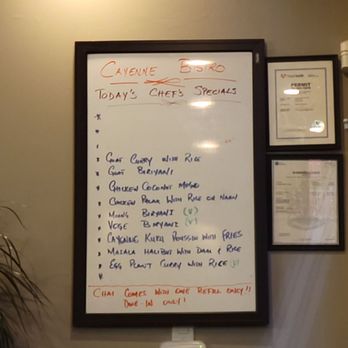 CAYENNE BISTRO
TODAY'S CHEF'S SPECIALS
GOAT CURRY WITH RICE
GOAT BIRIYANI
CHICKEN COCONUT
CHICKEN WITH RICE OR NAAN
BIRYANI (V)
VEGE BIRYANI (V)
CAYENNE WITH FRIES
MASALA HALIBUT WITH DAAL & RICE
EGG PLANT CURRY WITH RICE (V)
CHAI COMES WITH ONE REFILL ONLY!!
DINE-IN ONLY!
PERMIT